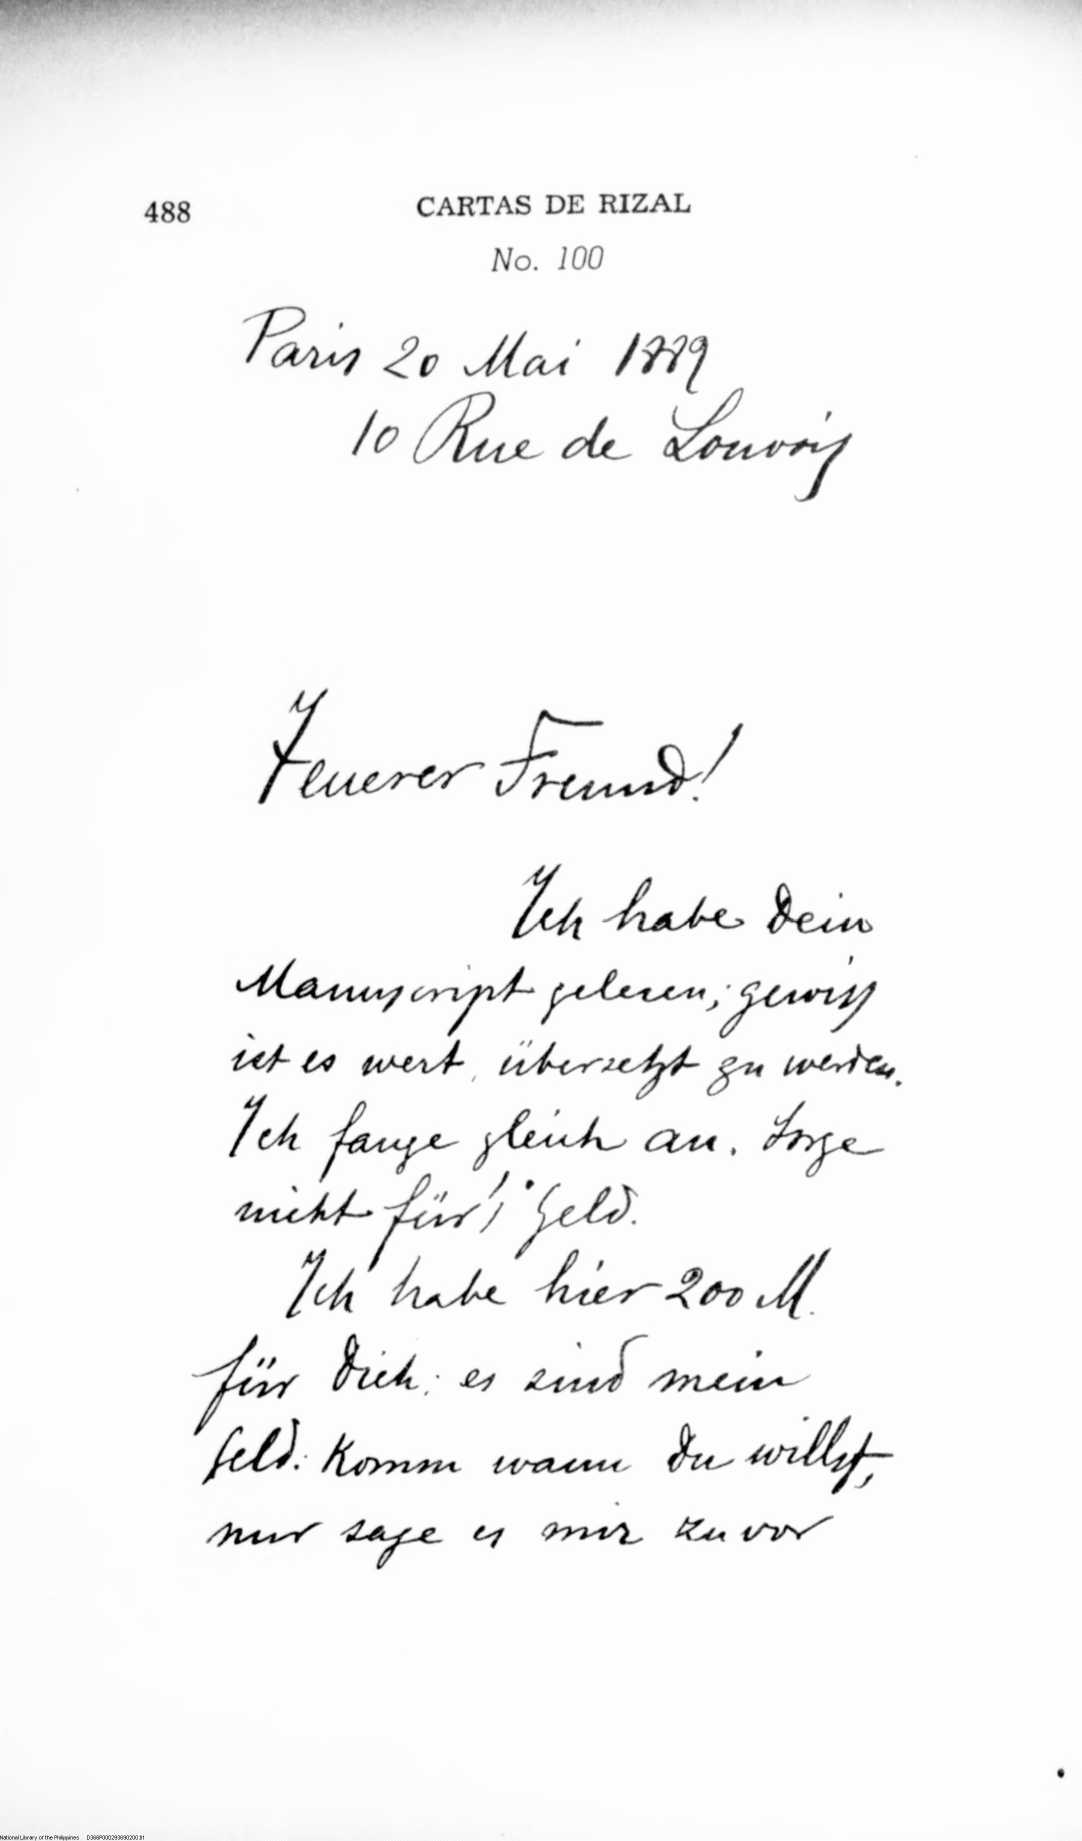 488 CARTAS DE RIZAL
No. 100
Paris 20 Mai 1889
10 Rue de Louvois
Teuerer Freund!
Ich habe Dein
Manuscript gelesen; gewiss
ist es wert, übersetzt zu werden.
Ich fange gleich an. Sorge
nicht für's Geld.
Ich habe hier 200 M.
für Dich; es sind mein
Geld. Komm wann Du willst,
nur sage es mir zuvor
National Library of the Philippines